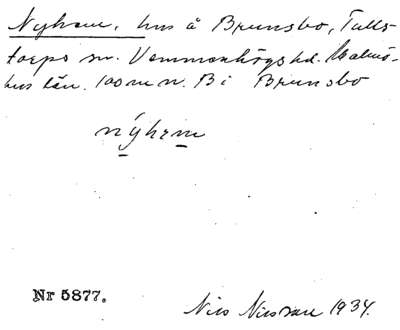 Nyhem, hus å Brunsbo, Tulls-
torps sn. Vemmenhögs hd. Malmö-
hus län. 100 m n. B i Brunsbo
nýhem
Nr 5877.
Nils Nilsson 1934.